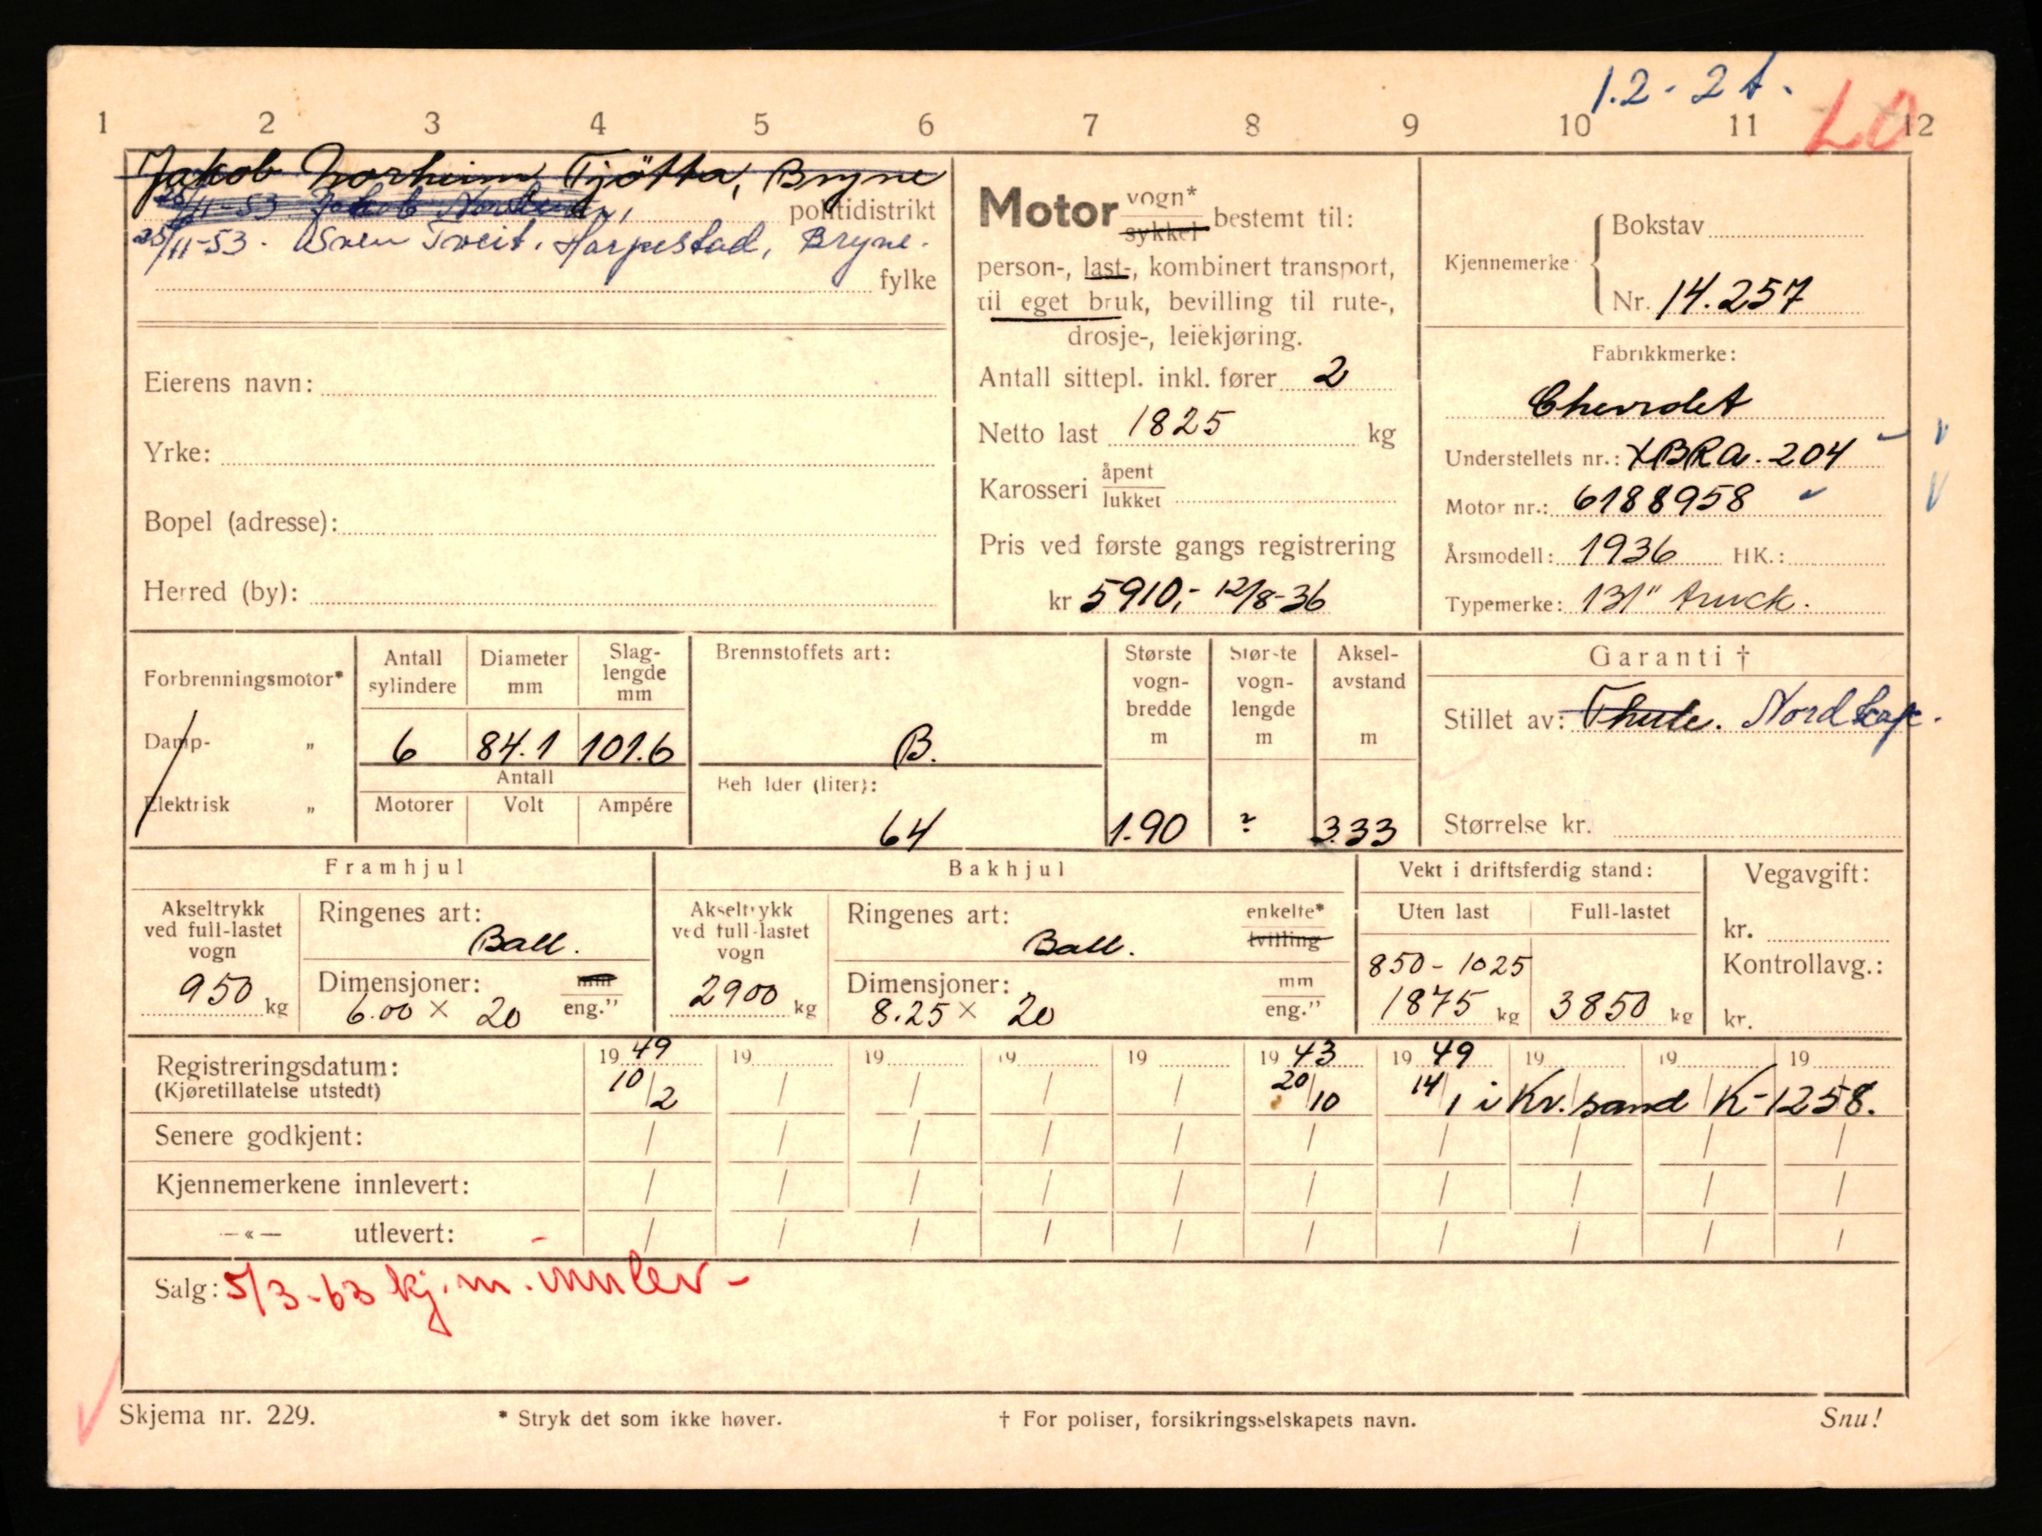 1.2 - 2 t. LO
1 2 3 4 5 6 7 8 9 10 11 12
Jakob Norheim, Tjötta, Bryne
25/11-53 Jakob Norheim, politidistrikt
25/11-53. Sven Tveit. Harpestad, Bryne.
fylke
Eierens navn:
Yrke:
Bopel (adresse):
Herred (by):
Motor vogn* sykkel bestemt til:
person-, last-, kombinert transport,
til eget bruk, bevilling til rute-,
drosje-, leiekjøring.
Antall sittepl. inkl. fører 2
Netto last 1825 kg
Karosseri åpent lukket
Pris ved første gangs registrering
kr 5910,- 12/8-36
Kjennemerke Bokstav
Nr. 14.257
Fabrikkmerke:
Chevrolet
Understellets nr.: XBRA. 204
Motor nr.: 6188958
Årsmodell: 1936 HK.:
Typemerke: 131" truck.
Forbrenningsmotor*
Damp- „
Elektrisk „
Antall sylindere Diameter mm Slag-lengde mm
6 84.1 101.6
Antall
Motorer Volt Ampére
Brennstoffets art:
B.
Beh lder (liter):
64
Største vogn-bredde m Største vogn-lengde m Aksel-avstand m
1.90 ? 3.33
Garanti †
Stillet av: Thule. Nordkap.
Størrelse kr.
Framhjul
Akseltrykk ved full-lastet vogn
950 kg
Ringenes art:
Ball.
Dimensjoner: mm
6.00 × 20 eng."
Bakhjul
Akseltrykk ved full-lastet vogn
2900 kg
Ringenes art: enkelte*
Ball. tvilling
Dimensjoner: mm
8.25 × 20 eng."
Vekt i driftsferdig stand:
Uten last Full-lastet
850 - 1025
1875 kg 3850 kg
Vegavgift:
kr.
Kontrollavg.:
kr.
Registreringsdatum: 19 49 19 19 19 19 19 43 19 49 19 19 19
(Kjøretillatelse utstedt) 10/2 / / / / 20/10 14/1 i Kr.sand K-1258.
Senere godkjent: / / / / / / / / / /
Kjennemerkene innlevert: / / / / / / / / / /
—«— utlevert: / / / / / / / / / /
Salg: 5/3-63 kj.m. innlev -
Skjema nr. 229. * Stryk det som ikke høver. † For poliser, forsikringsselskapets navn. Snu!